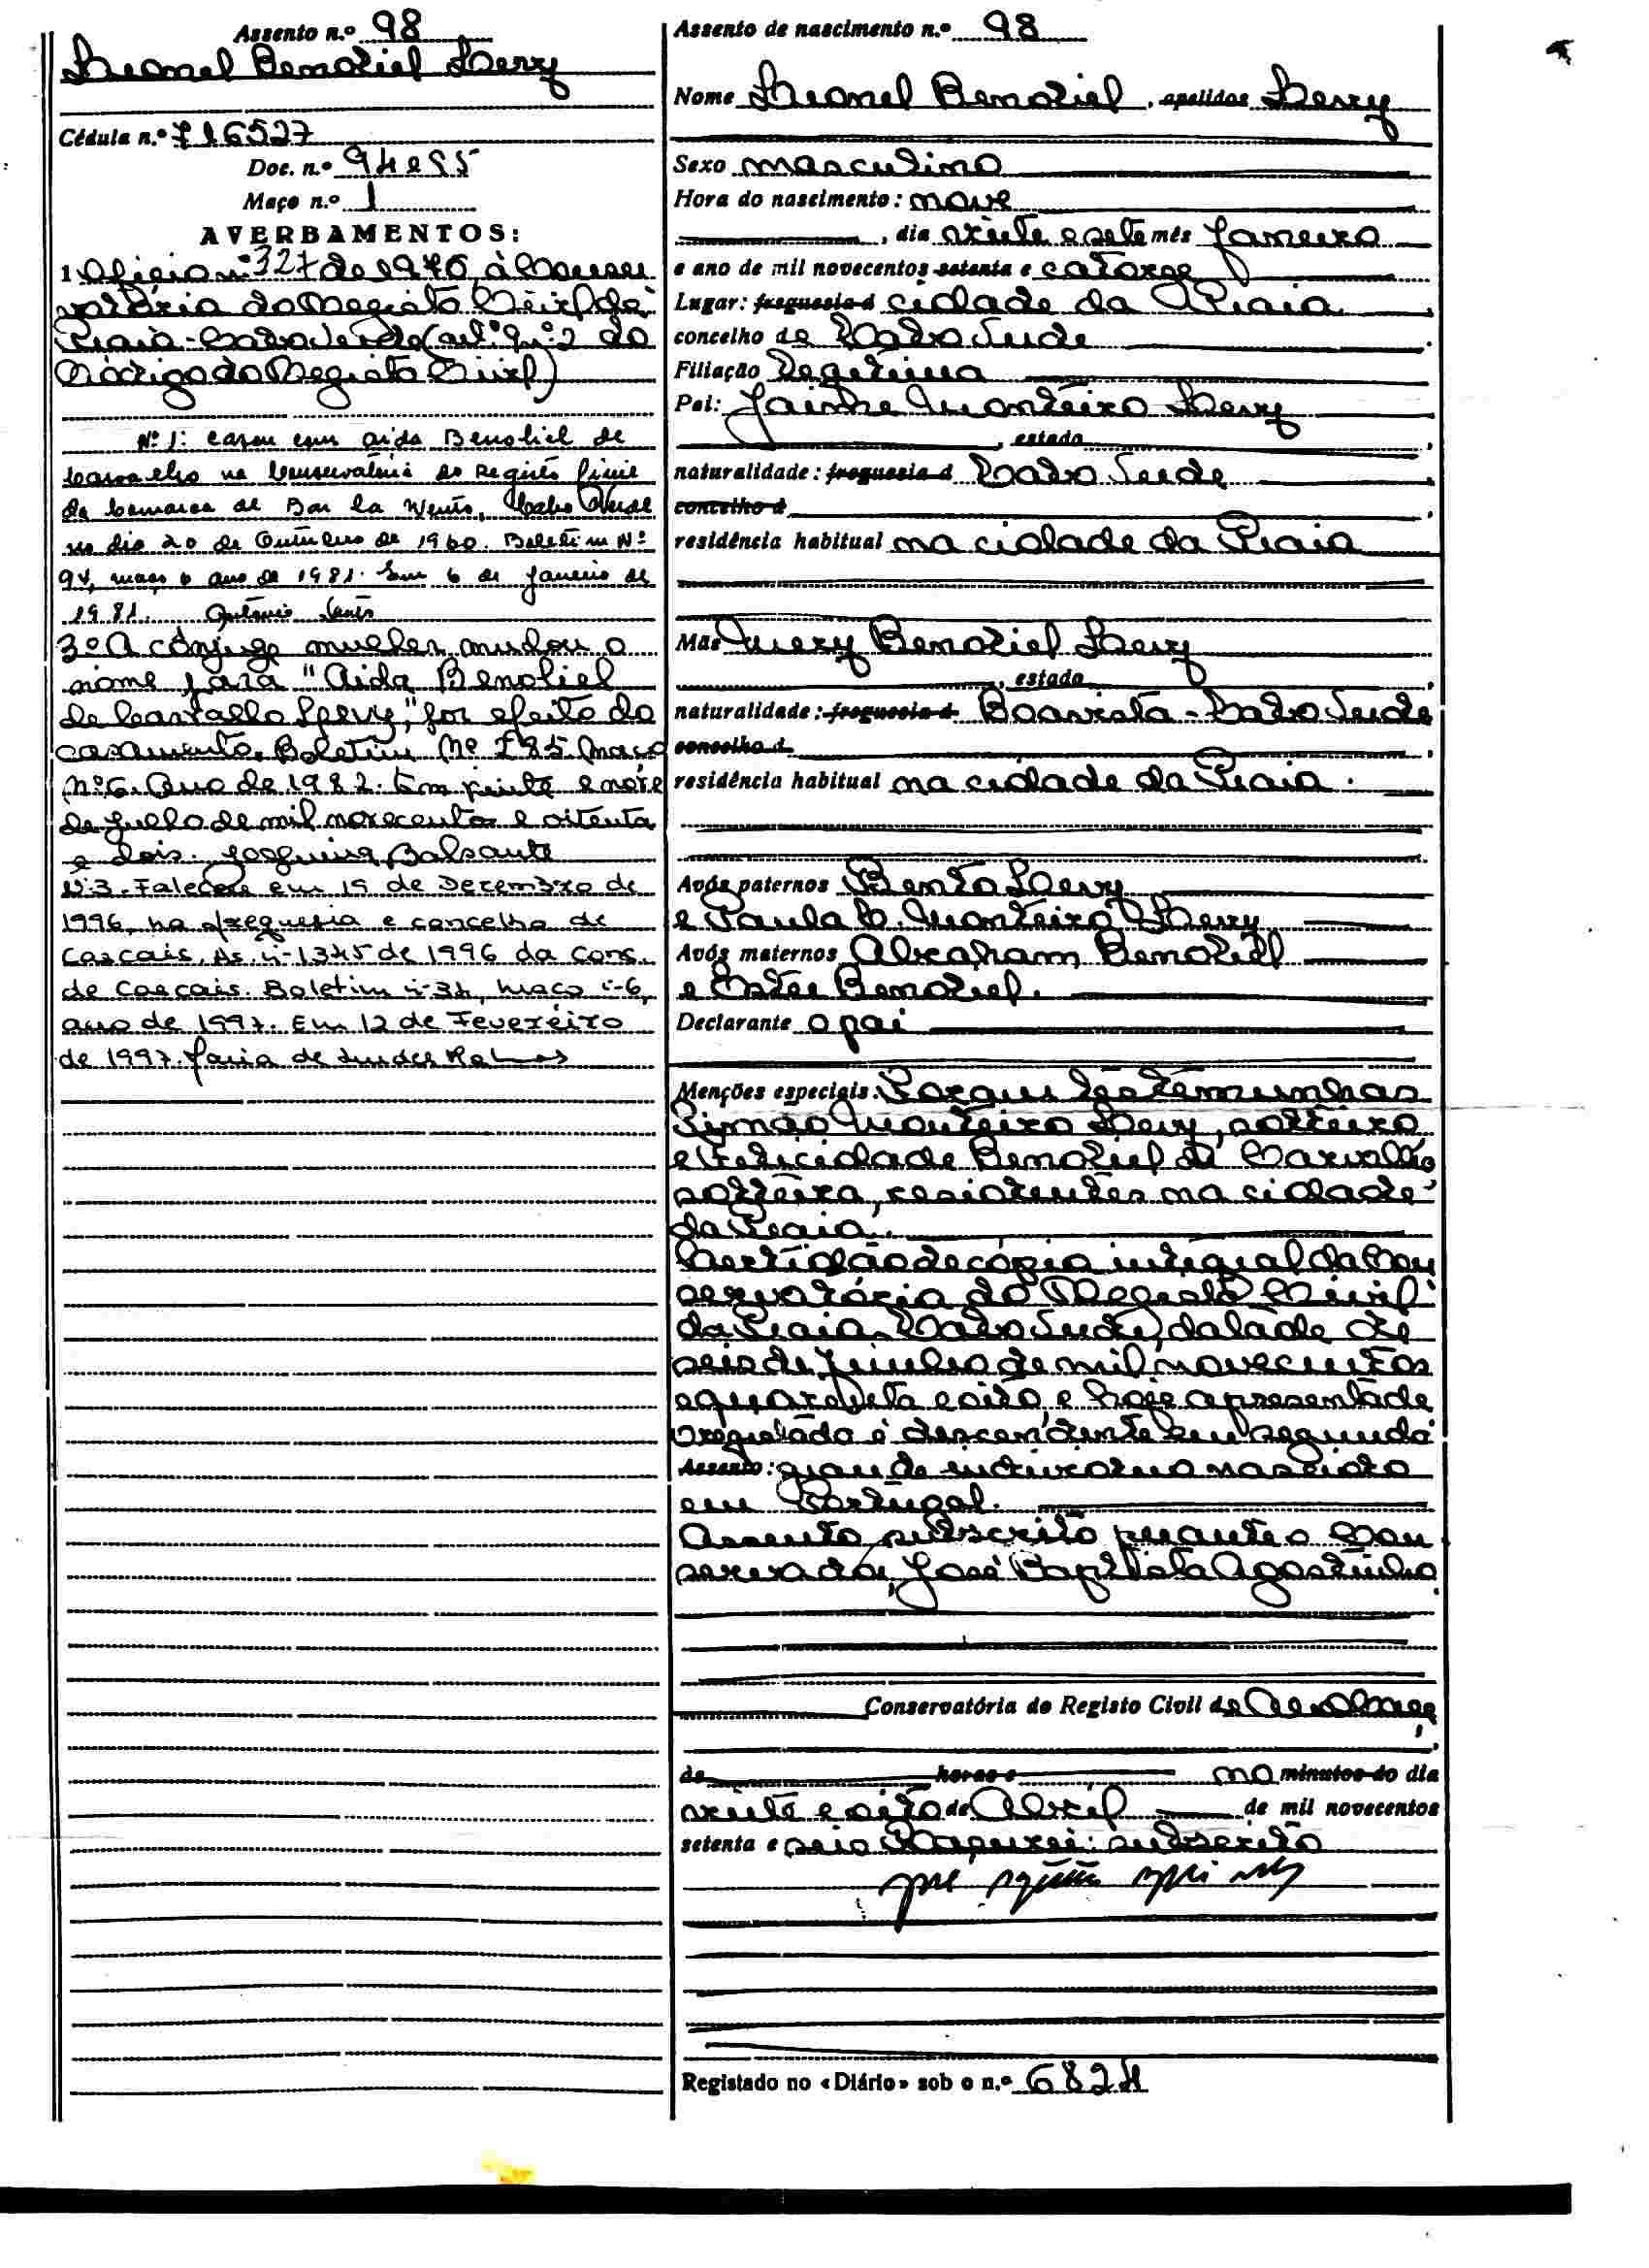 Assento n.º 98
Leonel Benoliel Levy
Cédula n.º 716527
Doc. n.º
Maço n.º 1
AVERBAMENTOS:
1 Ofício nº 327 de 1976, à Conser
vatória do Registo Civil da
Praia - Cabo Verde (artº 9 nº 2 do
Código do Registo Civil)
Nº 1: Casou com Aida Benoliel de
Carvalho na Conservatória do Registo Civil
da Comarca de Bar la Vento, Cabo Verde
no dia 20 de Outubro de 1960. Boletim Nº
94, maço 6 ano de 1981. Em 6 de Janeiro de
1981. António
3º A cônjuge mulher mudou o
nome para "Aida Benoliel
de Carvalho Levy," por efeito do
casamento. Boletim Nº 785 Maço
Nº 6. Ano de 1982. Em vinte e nove
de Julho de mil novecentos e oitenta
e dois.
Nº 3. Faleceu em 19 de Dezembro de
1996, na freguesia e concelho de
Cascais. As. nº 1345 de 1996 da Cons.
de Cascais. Boletim nº 34, maço nº 6,
ano de 1997. Em 12 de Fevereiro
de 1997. Maria de Lurdes Ramos
Assento de nascimento n.º 98
Nome Leonel Benoliel, apelidos Levy
Sexo masculino
Hora do nascimento: nove
, dia vinte e sete mês Janeiro
e ano de mil novecentos setenta e catorze
Lugar: freguesia d cidade da Praia
concelho de Cabo Verde
Filiação Legítima
Pai: Jaime Monteiro Levy
, estado ,
naturalidade: freguesia d Cabo Verde
concelho d
residência habitual na cidade da Praia
Mãe Mery Benoliel Levy
, estado ,
naturalidade: freguesia d Boavista - Cabo Verde
concelho d
residência habitual na cidade da Praia.
Avós paternos Bento Levy
e Paula C. Monteiro Levy
Avós maternos Abraham Benoliel
e Ester Benoliel.
Declarante o pai
Menções especiais: Foram testemunhas
Simão Monteiro Levy, solteiro
e Felicidade Benoliel de Carvalho
solteira, residentes na cidade
da Praia.
Certidão de cópia integral da Con
servatória do Registo Civil
da Praia, Cabo Verde, datada de
seis de Junho de mil novecentos
e quarenta e oito, e hoje apresentada
O registado é descendente em segundo
Assento: grau de indivíduo nascido
em Portugal.
Assento subscrito perante o Con
servador, José Baptista Agostinho
Conservatória do Registo Civil de Almada
de horas e no minutos do dia
vinte e oito de Abril de mil novecentos
setenta e seis subscrito
Registado no «Diário» sob o n.º 6824